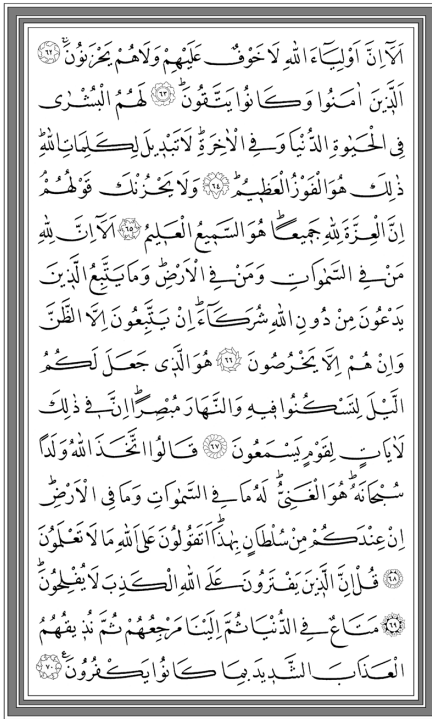 اَلَٓا اِنَّ اَوْلِيَٓاءَ اللّٰهِ لَا خَوْفٌ عَلَيْهِمْ وَلَا هُمْ يَحْزَنُونَۚ ﴿٦٢﴾
اَلَّذٖينَ اٰمَنُوا وَكَانُوا يَتَّقُونَۜ ﴿٦٣﴾ لَهُمُ الْبُشْرٰى
فِي الْحَيٰوةِ الدُّنْيَا وَفِي الْاٰخِرَةِۜ لَا تَبْدٖيلَ لِكَلِمَاتِ اللّٰهِۜ
ذٰلِكَ هُوَ الْفَوْزُ الْعَظٖيمُۜ ﴿٦٤﴾ وَلَا يَحْزُنْكَ قَوْلُهُمْۢ
اِنَّ الْعِزَّةَ لِلّٰهِ جَمٖيعًاۜ هُوَ السَّمٖيعُ الْعَلٖيمُ ﴿٦٥﴾ اَلَٓا اِنَّ لِلّٰهِ
مَنْ فِي السَّمٰوَاتِ وَمَنْ فِي الْاَرْضِۜ وَمَا يَتَّبِعُ الَّذٖينَ
يَدْعُونَ مِنْ دُونِ اللّٰهِ شُرَكَٓاءَۜ اِنْ يَتَّبِعُونَ اِلَّا الظَّنَّ
وَاِنْ هُمْ اِلَّا يَخْرُصُونَ ﴿٦٦﴾ هُوَ الَّذٖي جَعَلَ لَكُمُ
الَّيْلَ لِتَسْكُنُوا فٖيهِ وَالنَّهَارَ مُبْصِرًاۜ اِنَّ فٖي ذٰلِكَ
لَاٰيَاتٍ لِقَوْمٍ يَسْمَعُونَ ﴿٦٧﴾ قَالُوا اتَّخَذَ اللّٰهُ وَلَدًا
سُبْحَانَهُۜ هُوَ الْغَنِيُّۜ لَهُ مَا فِي السَّمٰوَاتِ وَمَا فِي الْاَرْضِۜ
اِنْ عِنْدَكُمْ مِنْ سُلْطَانٍ بِهٰذَاۜ اَتَقُولُونَ عَلَى اللّٰهِ مَا لَا تَعْلَمُونَ
﴿٦٨﴾ قُلْ اِنَّ الَّذٖينَ يَفْتَرُونَ عَلَى اللّٰهِ الْكَذِبَ لَا يُفْلِحُونَۜ
﴿٦٩﴾ مَتَاعٌ فِي الدُّنْيَا ثُمَّ اِلَيْنَا مَرْجِعُهُمْ ثُمَّ نُذٖيقُهُمُ
الْعَذَابَ الشَّدٖيدَ بِمَا كَانُوا يَكْفُرُونَ۟ ﴿٧٠﴾